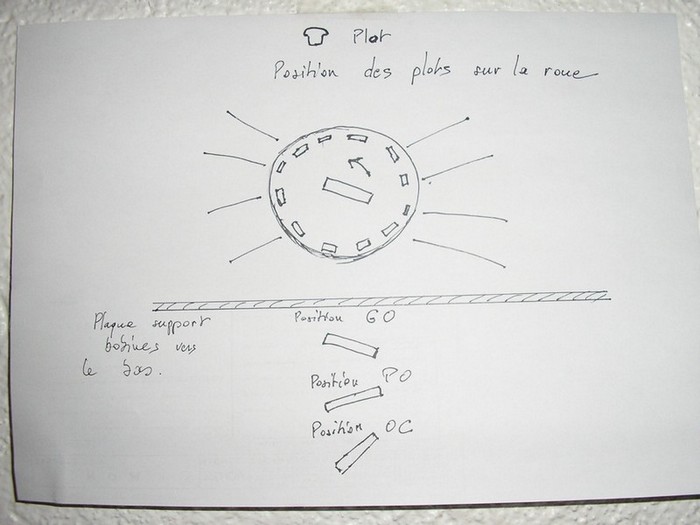 Plot
Position des plots sur la roue
Position GO
Plaque support
bobines vers
le bas.
Position PO
Position OC